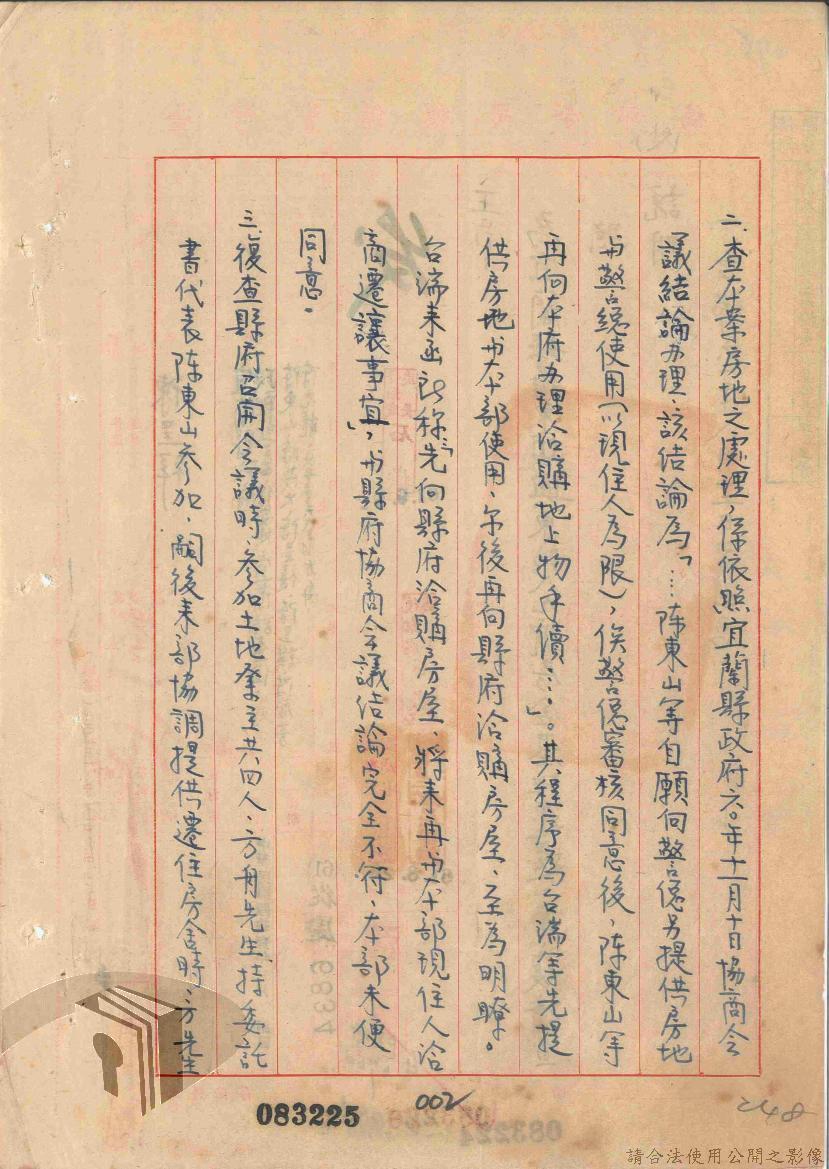 二、查本案房地之處理，係依照「宜蘭縣政府六〇年十一月十日協商会
議結論办理，該結論為「……陈東山等自願向警总另提供房地
与警总使用（以現住人為限），俟警总審核同意後，陈東山等
再向本府办理洽購地上物手續……」。其程序為台端等先提
供房地与本部使用，尔後再向縣府洽購房屋，至為明瞭。
台端来函所称：「先向縣府洽購房屋，將来再与本部現住人洽
商遷讓事宜」，与縣府協商会議結論完全不符，本部未便
同意。
三、復查縣府召開会議時，参加土地業主共四人，方舟先生持委託
書代表陈東山参加，嗣後来部協調提供遷住房舍時，方先生
083225
002
248
請合法使用公開之影像